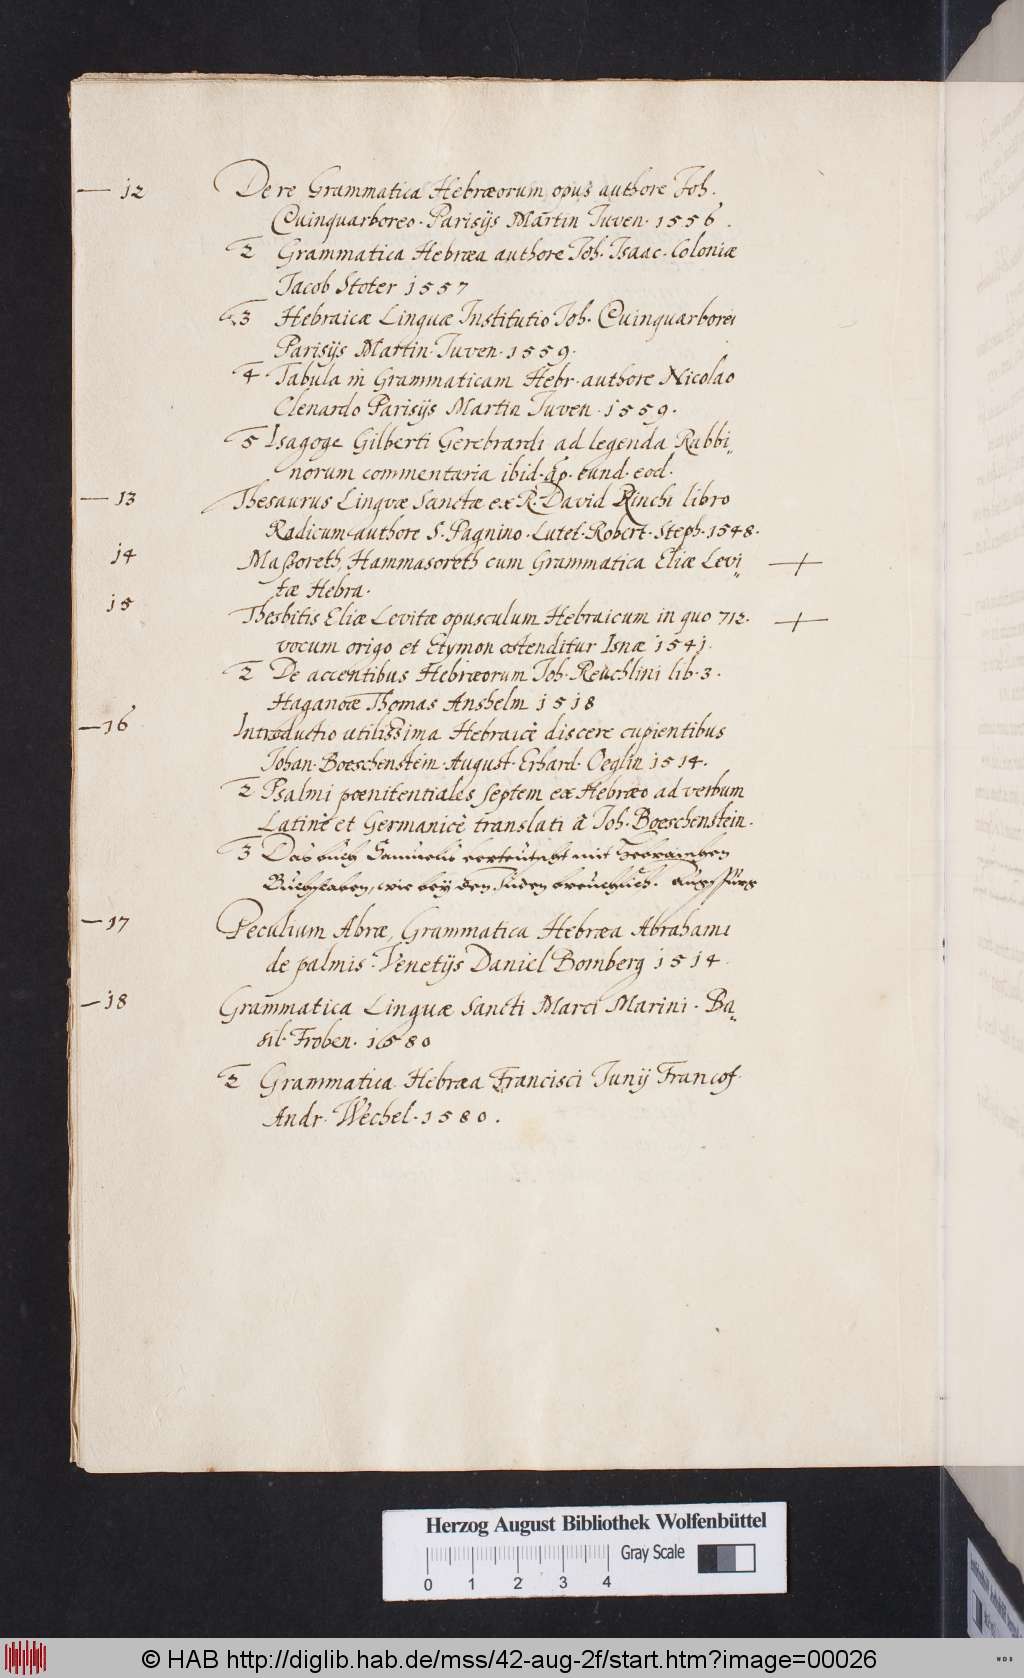 — 12 De re Grammatica Hebræorum opus authore Joh.
Quinquarboreo. Parisijs Martin Juven. 1556.
2 Grammatica Hebræa authore Joh. Isaac. Coloniæ
Jacob Stoter 1557
3 Hebraicæ Linguæ Institutio Joh. Quinquarborei
Parisijs Martin. Juven. 1559.
4. Tabula in Grammaticam Hebr. authore Nicolao
Clenardo Parisijs Martin Juven. 1559.
5 Isagoge Gilberti Gerebrardi ad legenda Rabbi„
norum commentaria ibid. ap. eund. eod.
— 13 Thesaurus Lingvæ Sanctæ ex R. David Kinchi libro
Radicum authore S. Pagnino. Lutet. Robert. Steph. 1548.
14 Maßoreth Hammasoreth cum Grammatica Eliæ Levi„ +
tæ Hebra.
15 Thesbitis Eliæ Levitæ opusculum Hebraicum in quo 712. +
vocum origo et Etymon ostenditur Isnæ 1541.
2 De accentibus Hebræorum Joh. Reuchlini lib. 3.
Haganoæ Thomas Anshelm 1518
— 16 Introductio utilissima Hebraicè discere cupientibus
Johan. Boeschenstein. August. Erhard. Oeglin 1514.
2 Psalmi pœnitentiales septem ex Hebræo ad verbum
Latinè et Germanicè translati à Joh. Boeschenstein.
3 Das buch Samuelis verteutscht mit Hebraischen
Buchstaben, wie bey den Juden breuchlich. Augspurg
— 17 Peculium Abræ, Grammatica Hebræa Abrahami
de palmis. Venetijs Daniel Bomberg 1514.
— 18 Grammatica Linguæ Sancti Marci Marini. Ba„
sil. Froben. 1580
2 Grammatica Hebræa Francisci Junij Francof.
Andr. Wechel. 1580.
Herzog August Bibliothek Wolfenbüttel
Gray Scale
0 1 2 3 4
© HAB http://diglib.hab.de/mss/42-aug-2f/start.htm?image=00026